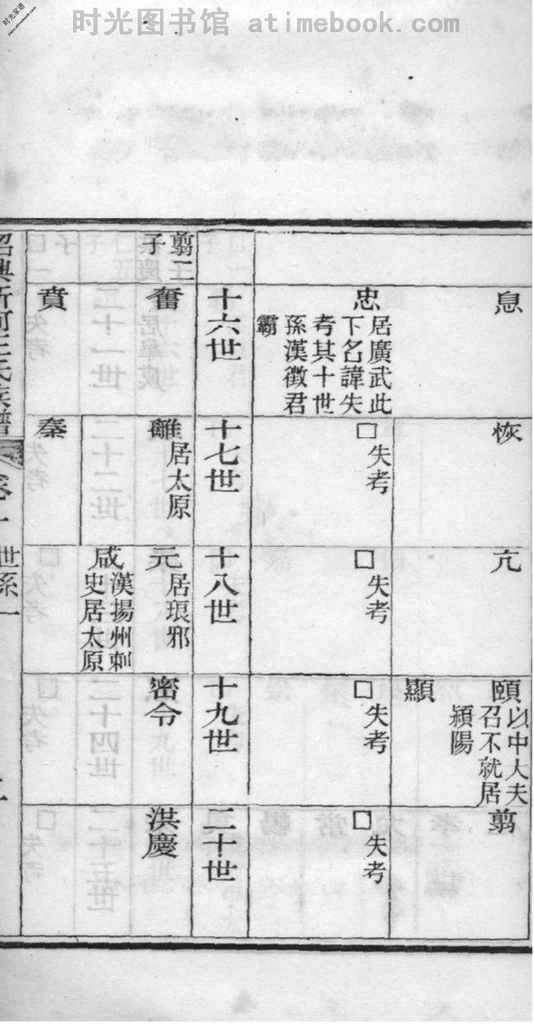 时光图书馆 atimebook.com
息
恢
亢
頤 以中大夫
召不就居
潁陽
顯
翦
忠 居廣武此
下名諱失
考其十世
孫漢徵君
霸
□ 失考
□ 失考
□ 失考
□ 失考
十六世
十七世
十八世
十九世
二十世
翦二
子
奮
離 居太原
元 居琅邪
密令
洪慶
賁
秦
咸 漢揚州刺
史居太原
紹興新河王氏族譜
卷一
世系一